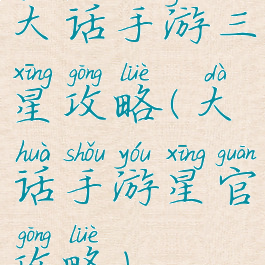 大话手游三
xīng gōng lüè dà
星攻略(大
huà shǒu yóu xīng guān
话手游星官
gōng lüè
攻略)